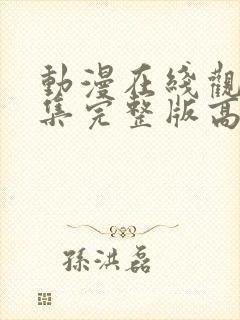 動漫在綫觀
集完整版高
孫洪磊